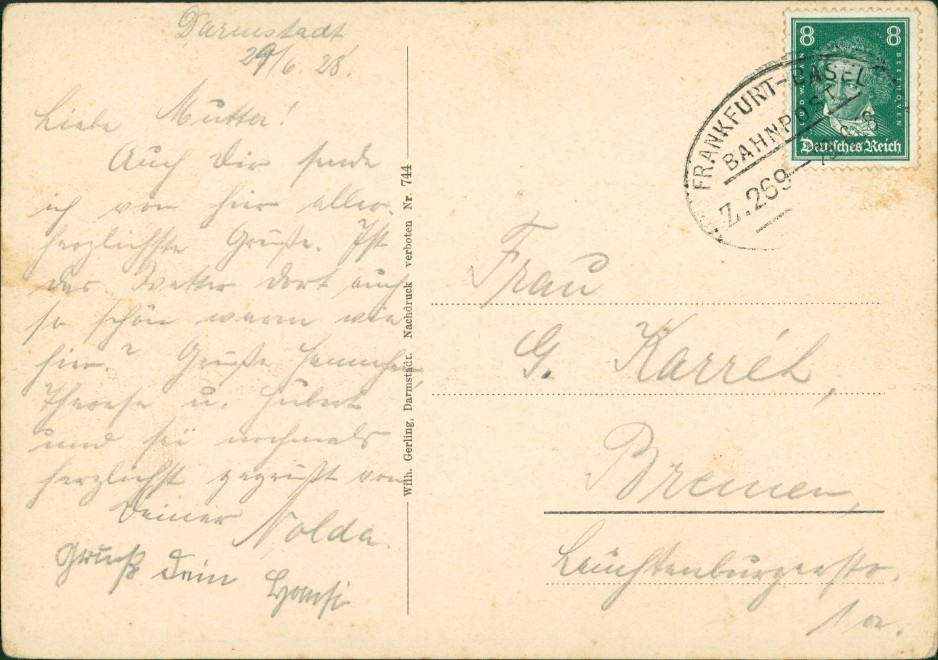 Darmstadt
29/6. 28.
Liebe Mutter!
Auch Dir sende
ich von hier aller-
herzlichste Grüße. Ist
das Wetter dort auch
so schön warm wie
hier? Grüße
Therese u. Hubert
und sei nochmals
herzlichst gegrüßt von
Deiner Nolda.
Gruß dein Hansi
Wilh. Gerling, Darmstadt. Nachdruck verboten Nr. 744
8 8
LUDW. V. BEETHOVEN
Deutsches Reich
FRANKFURT-BASEL
BAHNPOST
Z.269
Frau
G. Karrél,
Bremen,
Leuchtenburgerstr.
1a.